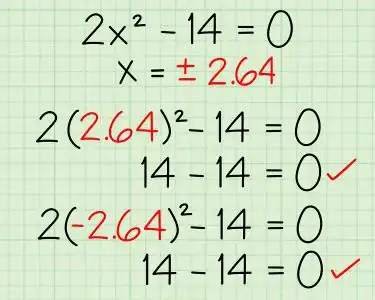 2x² - 14 = 0
x = ± 2.64
2(2.64)² - 14 = 0
14 - 14 = 0 ✓
2(-2.64)² - 14 = 0
14 - 14 = 0 ✓